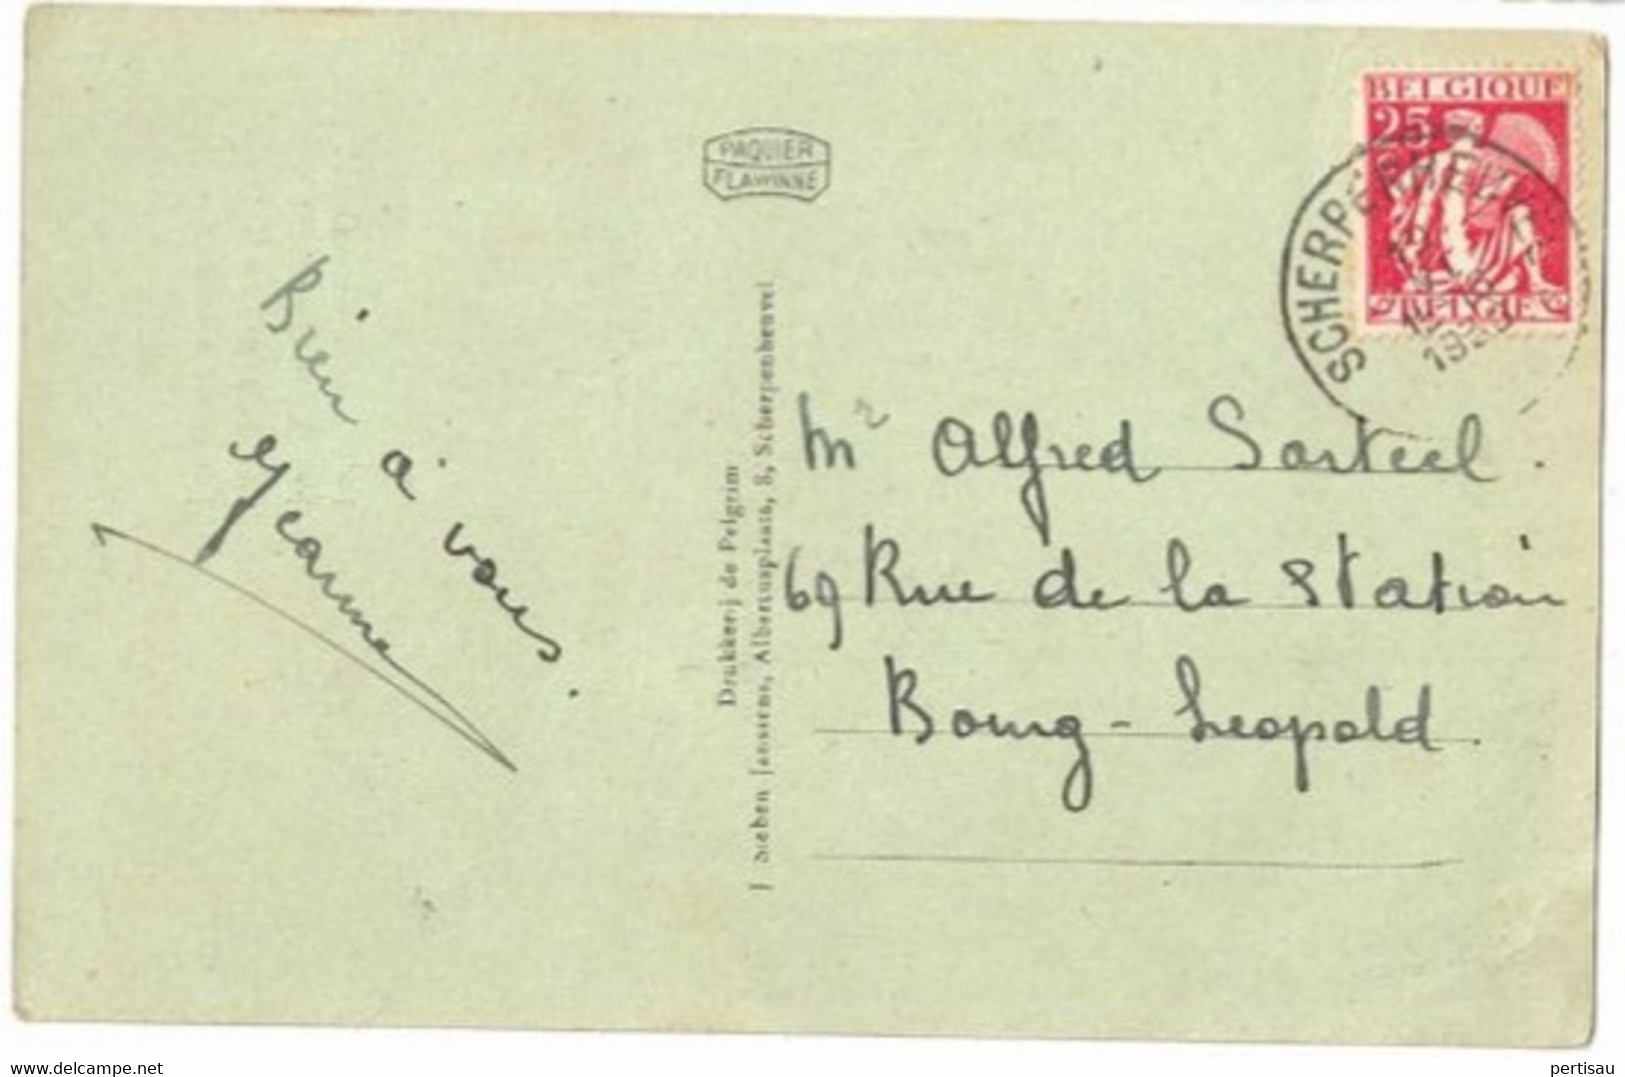 PAQUIER
FLAWINNE
BELGIQUE
25
BELGIE
SCHERPENHEUVEL
Bien à vous.
Jeanne
Drukkerij de Pelgrim
J Sieben Janssens, Albertusplaats, 8, Scherpenheuvel
Mr Alfred Sarteel.
69 Rue de la Station
Bourg-Leopold.
www.delcampe.net
pertisau